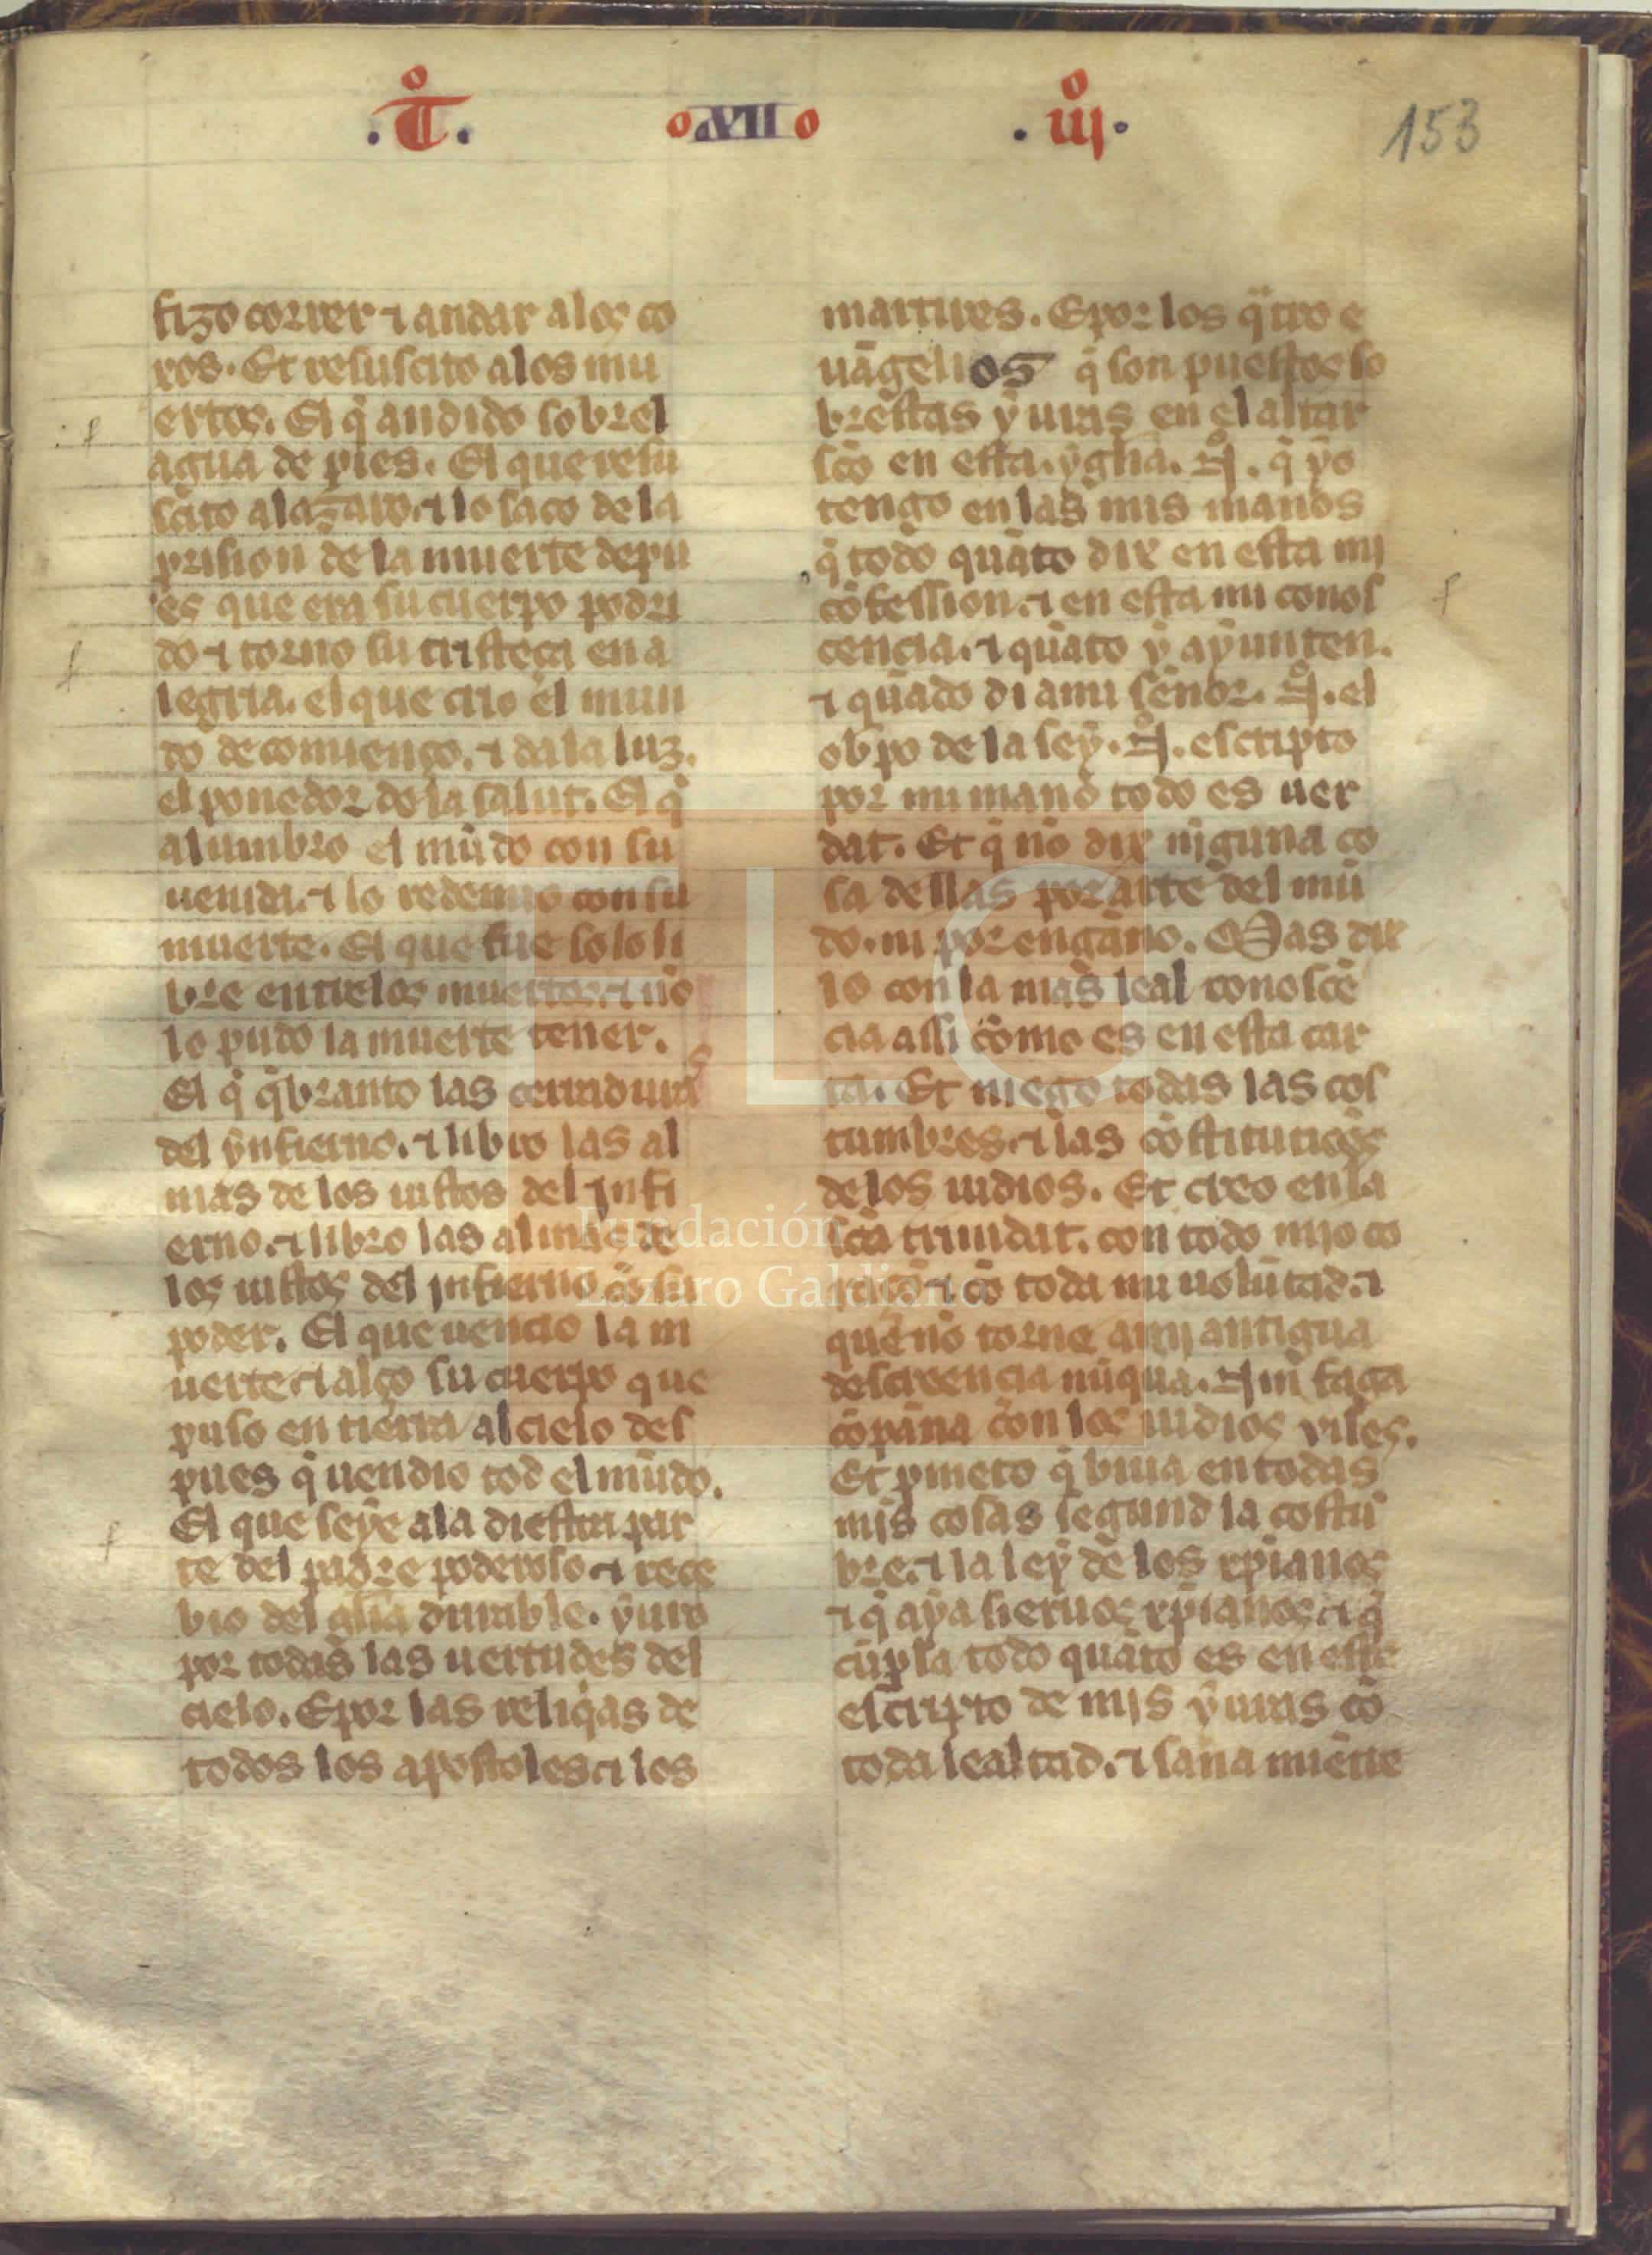 .T͞o.
o XII o
.iij̊.
153
fizo correr ⁊ andar alos co
xos. Et resuscito alos mu
ertos. El q̇ andido sobrel
agua de pies. El que resu
scito alazaro. ⁊ lo saco dela
prision de la muerte depu
es que era su cuerpo podri
do ⁊ torno su tristeça en a
legria. el que crio el mun
do de comienço. ⁊ da la luz.
el ponedor de la salut. El q̇
alumbro el mūdo con su
uenida. ⁊ lo redemio con su
muerte. El que fue solo li
bre entrelos muertos. ⁊ nō
lo pudo la muerte tener.
El q̇ q̇branto las cerraduras
del ẏnfierno. ⁊ libro las al
mas de los iustos del infi
erno. ⁊ libro las almas de
los iustos del infierno
poder. El que uencio la m
uerte ⁊ alço su cuerpo que
puso en tierra al cielo des
pues q̇ uendio tod el mūdo.
El que seẏe ala diestra par
te del padre poderoso. ⁊ rece
bio del gl̄ia durable. ẏuro
por todas las uertudes del
cielo. E por las reliq̇as de
todos los apostoles. ⁊ los
martires. E por los q̇tro e
uāgelios q̇ son puestos so
brestas ẏuras en el altar
sc̄o en esta. ẏgl̄ia. N̊. q̇ ẏo
tengo en las mis manos
q̇ todo quāto dix en esta mi
cōfession. ⁊ en esta mi conos
cencia. ⁊ quāto ẏ aẏunten.
⁊ quādo di a mi sēnor. N̊. el
obpo de la seẏ. N̊. escripto
por mi mano todo es uer
dat. Et q̇ nō dix niguna co
sa dellas por arte del mū
do. ni por engāno. Mas dix
lo con la mas leal conoscē
cia assi como es en esta car
ta. Et niego todas las cos
tumbres. ⁊ las cōstituciōes
de los iudios. Et creo en la
sc̄a trinidat. con todo mio co
raçō. ⁊ cō toda mi uolūtad. ⁊
que nō torne a mi antigua
descreencia nūqua. Nin faga
cōpāna con los iudios viles.
Et pmeto q̇ biua en todas
mis cosas segund la costū
bre. ⁊ la leẏ de los xp̄ianos
⁊ q̇ aẏa sieruos xp̄ianos. ⁊ q̇
cūpla todo quāto es en este
escripto de mis ẏuras cō
toda lealtad. ⁊ sana miente
FLG
Fundación
Lázaro Galdiano